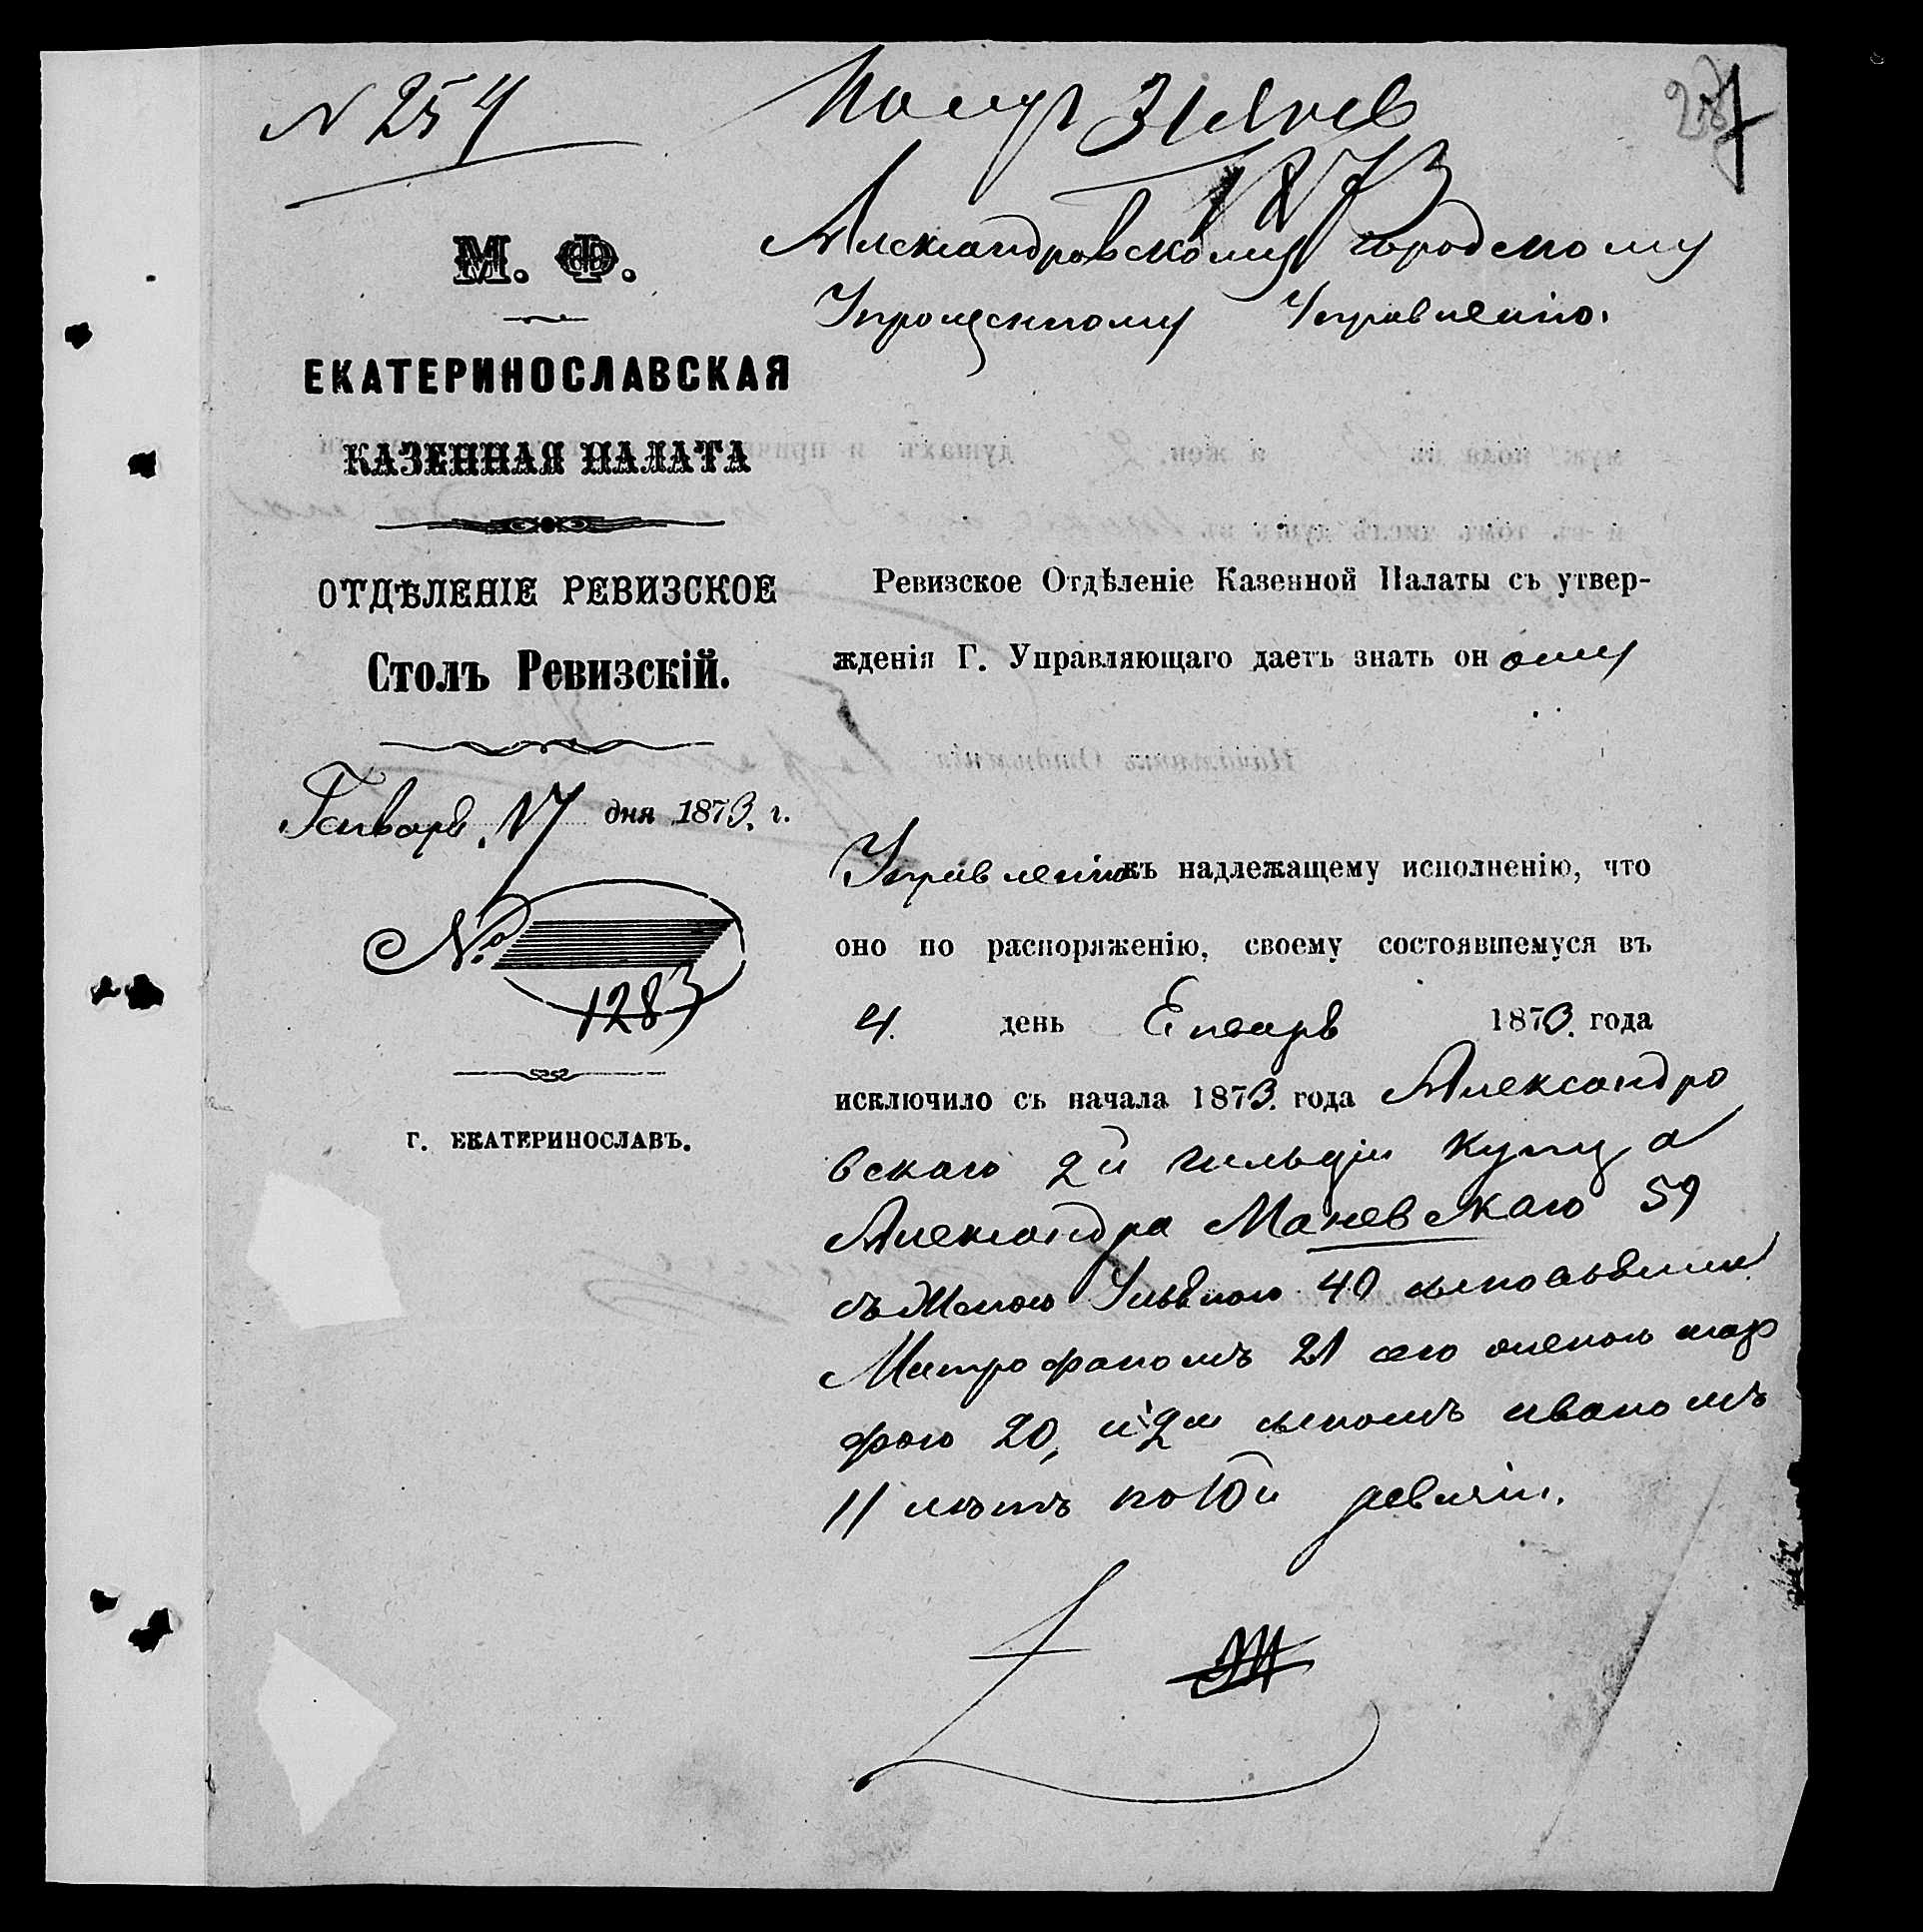 N 254
Получ 31 Янв
1873
Александровскому городскому
Упрощенному Управленію.
М. Ф.
ЕКАТЕРИНОСЛАВСКАЯ
КАЗЕННАЯ ПАЛАТА
ОТДѢЛЕНІЕ РЕВИЗСКОЕ
Столъ Ревизскій.
Генваря 17 дня 1873. г.
№
1283
г. ЕКАТЕРИНОСЛАВЪ.
Ревизское Отдѣленіе Казенной Палаты съ утвер-
жденія Г. Управляющаго даетъ знать оному
Управленію къ надлежащему исполненію, что
оно по распоряженію, своему состоявшемуся въ
4. день Генваря 1873. года
исключило съ начала 1873. года Александро
вскаго 2й гильдіи купца
Александра Маневскаго 59
съ женою 40 сыновьями
Митрофаномъ 21 его женою мар
фою 20, и 2м сыномъ иваномъ
11 лѣтъ по 10й ревизіи.